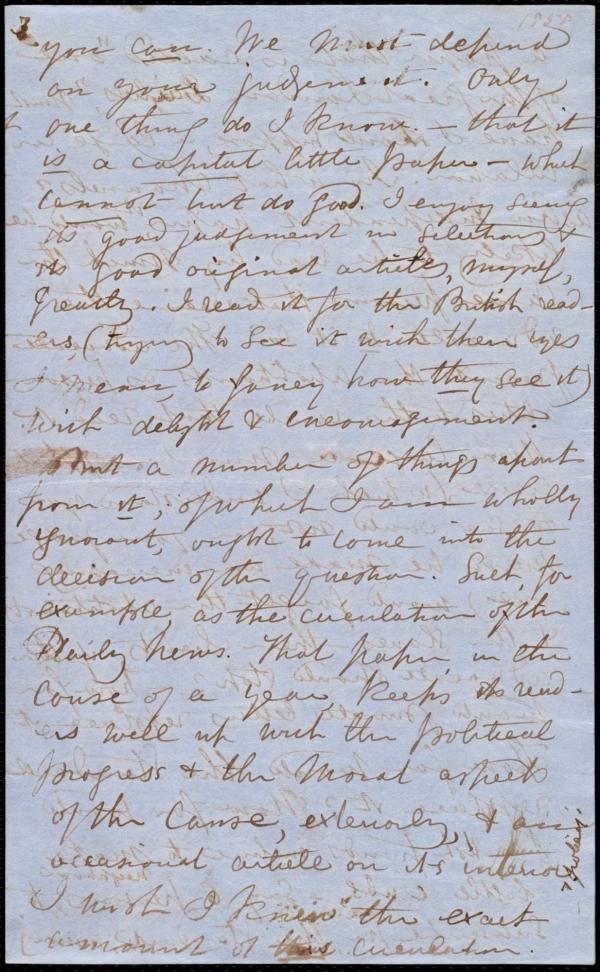 3
1858
you can. We must depend
on your judgement. Only
one thing do I know. - that it
is a capital little paper - which
cannot but do good. I enjoy seeing
its good judgement in selections &
its good original articles, myself,
greatly. I read it for the British read-
ers, (trying to see it with their eyes
I mean, to fancy how they see it)
with delight & encouragement.
But a number of things apart
from it, of which I am wholly
ignorant, ought to come into the
decision of the question. Such, for
example, as the circulation of the
Daily News. That paper, in the
course of a year, keeps its read-
ers well up with the political
progress & the moral aspects
of the Cause, exteriorly, & an
occasional article on its interior
I wish I knew the exact
amount of this circulation.